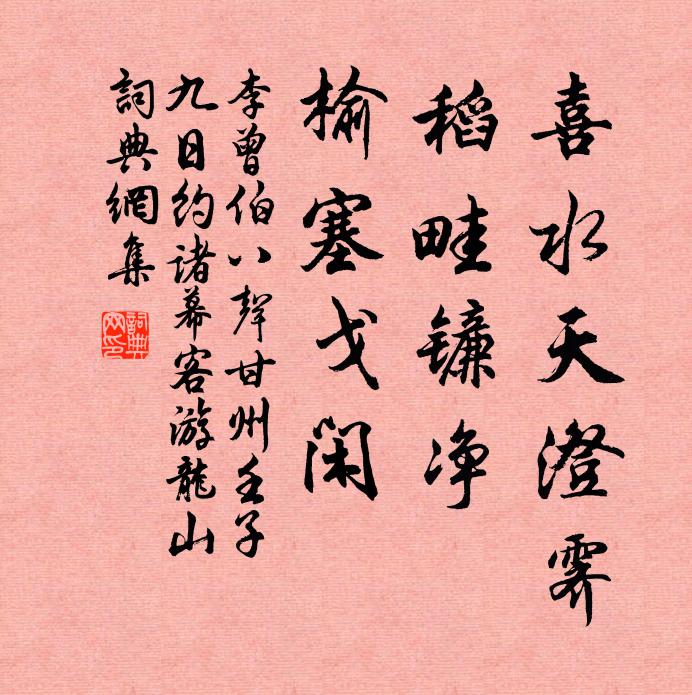 喜水天澄霁
稻畦镰净
榆塞戈闲
李曾伯八聲甘州壬子
九日约諸幕客游龍山
詞典網集
詞典网印